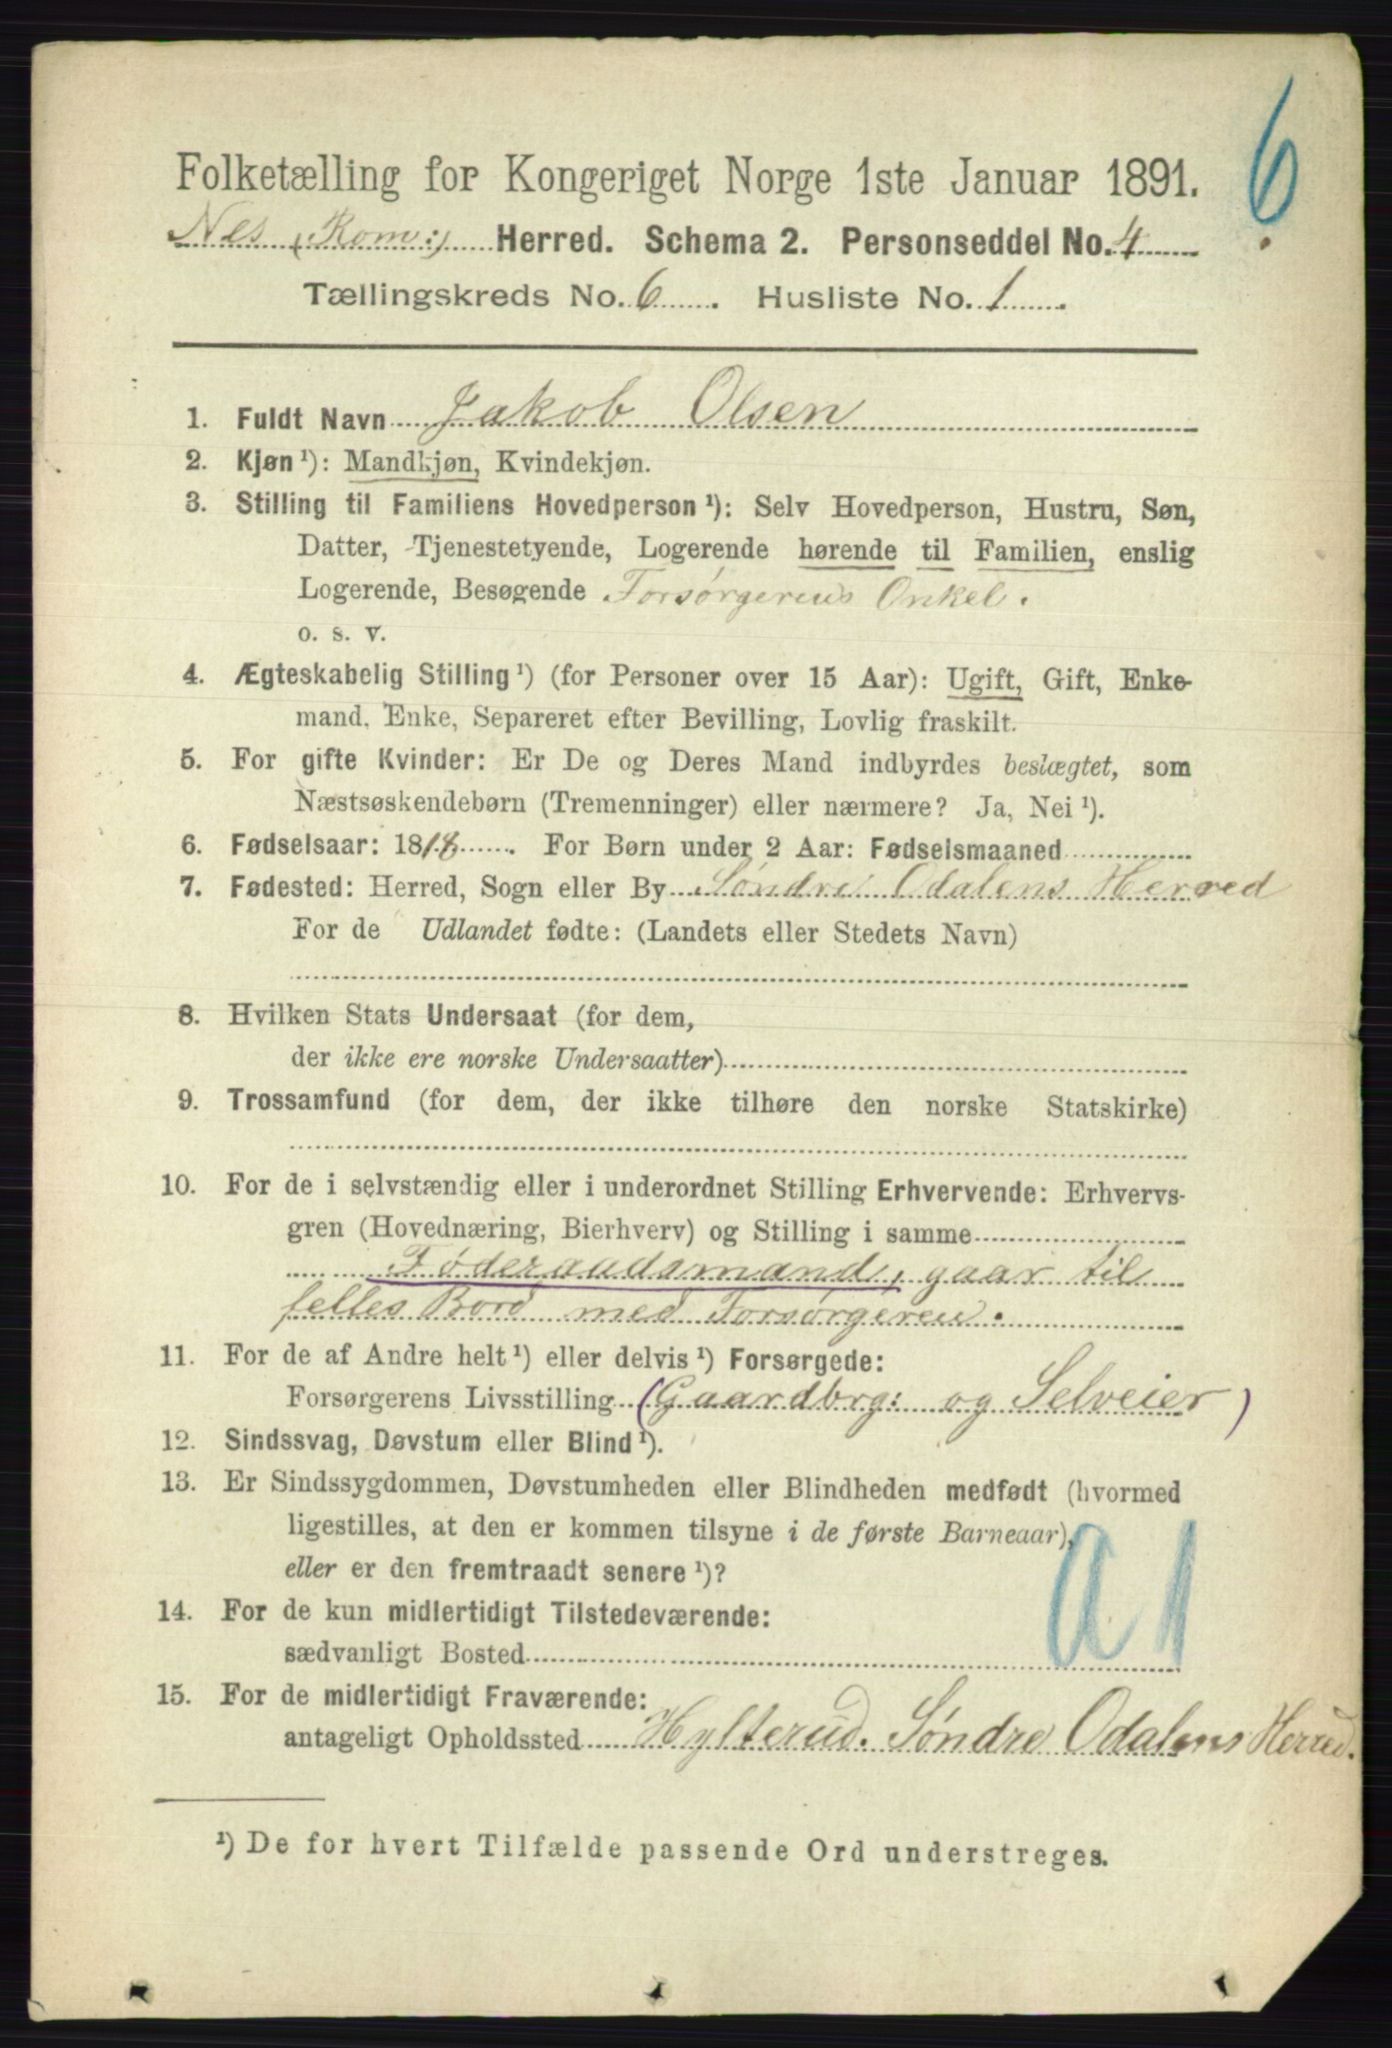 6.
Folketælling for Kongeriget Norge 1ste Januar 1891.
Nes (Rom:) Herred. Schema 2. Personseddel No. 4
Tællingskreds No. 6. Husliste No. 1.
1. Fuldt Navn Jakob Olsen
2. Kjøn ¹): Mandkjøn, Kvindekjøn.
3. Stilling til Familiens Hovedperson ¹): Selv Hovedperson, Hustru, Søn,
Datter, Tjenestetyende, Logerende hørende til Familien, enslig
Logerende, Besøgende Forsørgerens Onkel.
o. s. v.
4. Ægteskabelig Stilling ¹) (for Personer over 15 Aar): Ugift, Gift, Enke-
mand, Enke, Separeret efter Bevilling, Lovlig fraskilt.
5. For gifte Kvinder: Er De og Deres Mand indbyrdes beslægtet, som
Næstsøskendebørn (Tremenninger) eller nærmere? Ja, Nei ¹).
6. Fødselsaar: 1818. For Børn under 2 Aar: Fødselsmaaned
7. Fødested: Herred, Sogn eller By Søndre Odalens Herred
For de Udlandet fødte: (Landets eller Stedets Navn)
8. Hvilken Stats Undersaat (for dem,
der ikke ere norske Undersaatter)
9. Trossamfund (for dem, der ikke tilhøre den norske Statskirke)
10. For de i selvstændig eller i underordnet Stilling Erhvervende: Erhvervs-
gren (Hovednæring, Bierhverv) og Stilling i samme
Føderaadsmand, gaar til
felles Bord med Forsørgeren.
11. For de af Andre helt ¹) eller delvis ¹) Forsørgede:
Forsørgerens Livsstilling (Gaardbrg: og Selveier)
12. Sindssvag, Døvstum eller Blind ¹).
13. Er Sindssygdommen, Døvstumheden eller Blindheden medfødt (hvormed
ligestilles, at den er kommen tilsyne i de første Barneaar),
eller er den fremtraadt senere ¹)?
a 1
14. For de kun midlertidigt Tilstedeværende:
sædvanligt Bosted
15. For de midlertidigt Fraværende:
antageligt Opholdssted Hylterud. Søndre Odalens Herred.
¹) De for hvert Tilfælde passende Ord understreges.